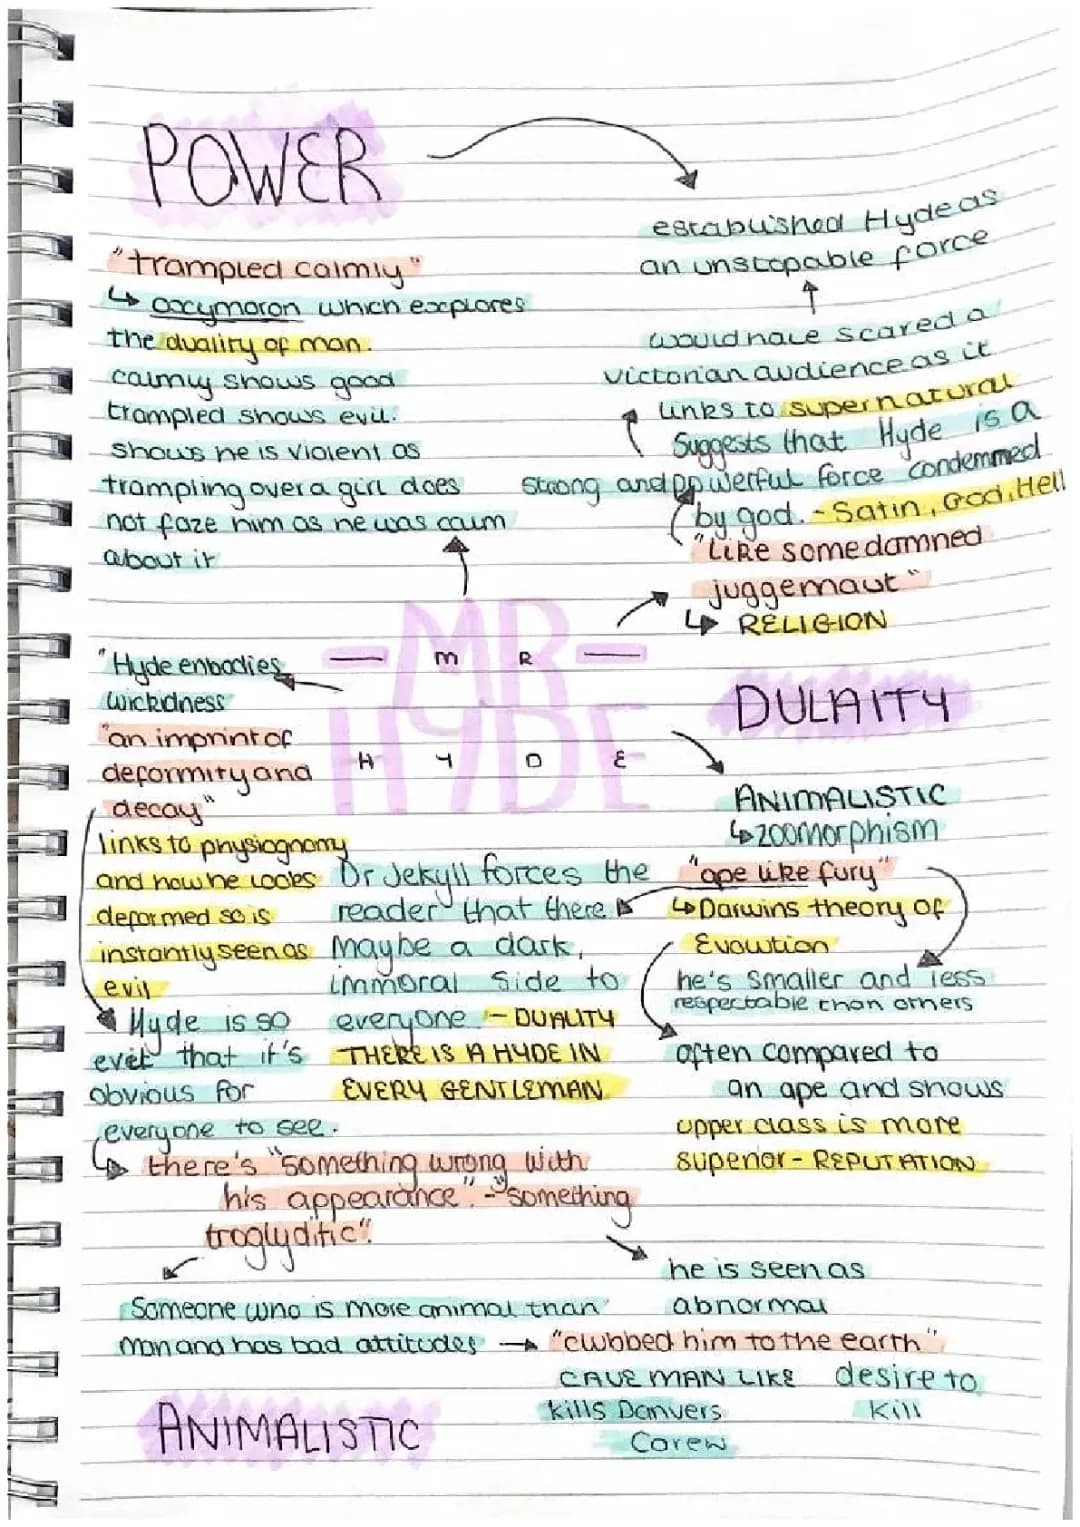 POWER
"trampled calmly"
↳ oxcymoron which explores
the duality of man.
calmly shows good
trampled shows evil.
shows he is violent as
trampling over a girl does
not faze him as he was calm
about it
established Hyde as
an unstopable force
would have scared a
victorian audience as it
links to supernatural
Suggests that Hyde is a
strong and powerful force condemmed
by god. - Satin, God, Hell
"Like some damned
juggernaut"
↳ RELIGION
- MR -
HYDE
M R
H Y D E
"Hyde enbodies
wickidness
"an imprint of
deformity and
decay"
links to physiognomy
and how he looks
deformed so is
instantly seen as
evil
Hyde is so
evil that it's
obvious for
everyone to see.
DULAITY
ANIMALISTIC
↳ zoomorphism
"ape like fury"
↳ Darwins theory of
Evolution
he's smaller and less
respectable than others
often compared to
an ape and shows
upper class is more
superior - REPUTATION
Dr Jekyll forces the
reader that there
Maybe a dark,
immoral side to
everyone - DUALITY
THERE IS A HYDE IN
EVERY GENTLEMAN
↳ there's "something wrong with
his appearance". - "something
troglyditic".
he is seen as
abnormal
Someone who is more animal than
man and has bad attitudes → "clubbed him to the earth"
CAVE MAN LIKE
kills Danvers
Carew
desire to
kill
ANIMALISTIC